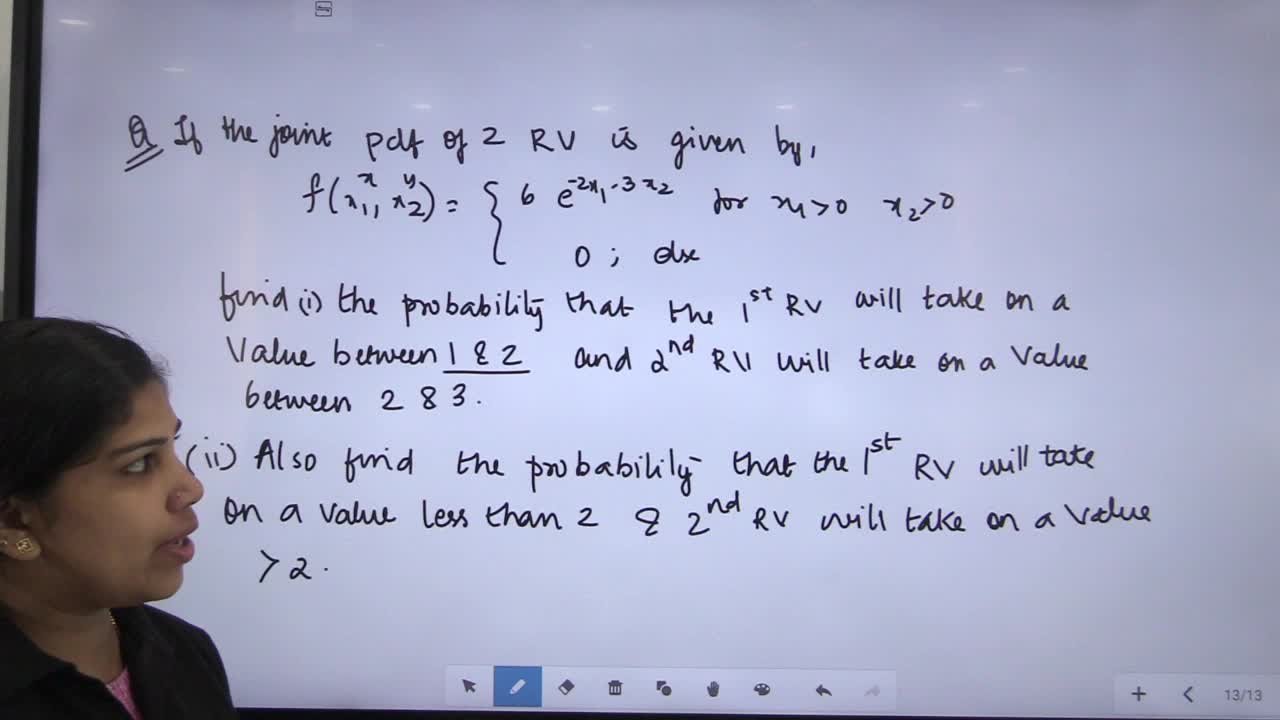 Q If the joint pdf of 2 RV is given by,
x y
f(x₁, x₂) = { 6 e^-2x₁-3x₂ for x₁>0 x₂>0
0 ; else
find (i) the probability that the 1st RV will take on a
Value between 1 & 2 and 2nd RV will take on a value
between 2 & 3.
(ii) Also find the probability that the 1st RV will take
on a value less than 2 & 2nd RV will take on a value
> 2.
13/13